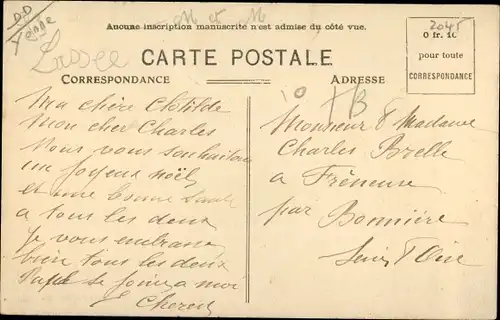 M et M
Aucune inscription manuscrite n'est admise du côté vue.
2045
0 fr. 10
pour toute
CORRESPONDANCE
CARTE POSTALE
CORRESPONDANCE
ADRESSE
10
Ma chère Clotilde
Mon cher Charles
Nous vous souhaitons
un joyeux noël
et une bonne Santé
a tous les deux
Je vous embrasse
bien tous les deux
se joint a moi
Monsieur & Madame
Charles Brelle
a Fréneuse
par Bonnière
Seine & Oise